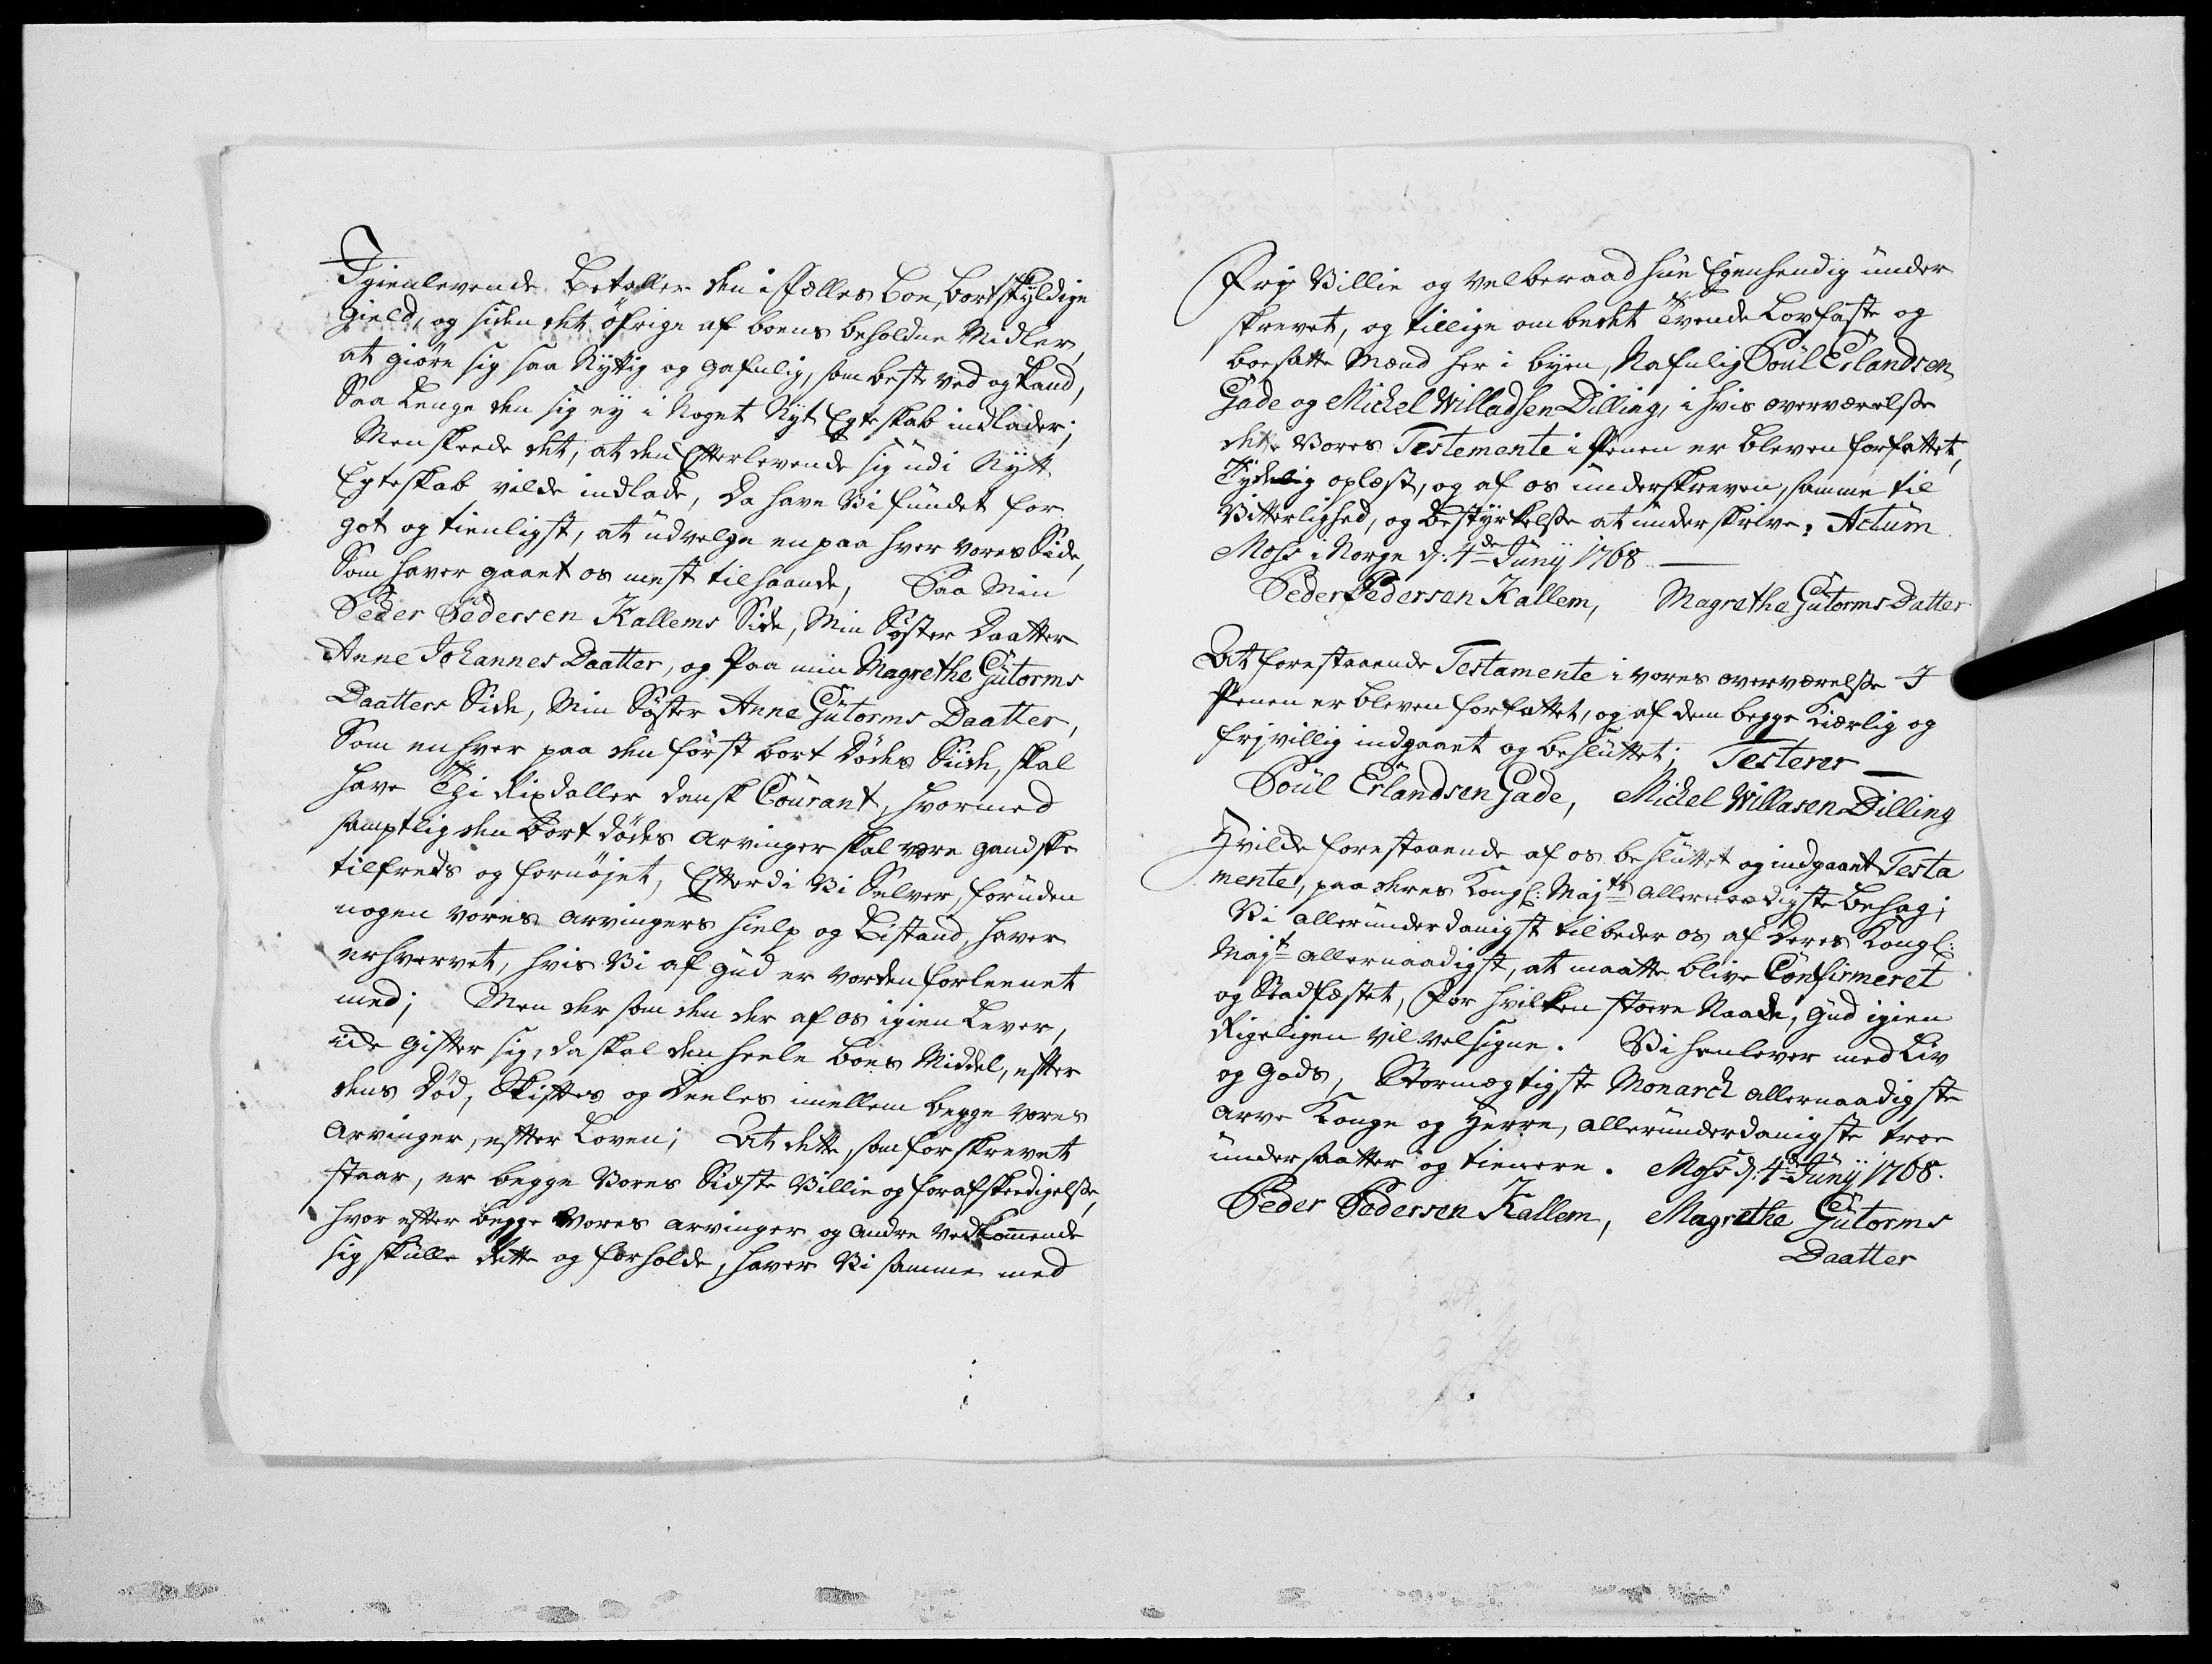 Igienlevende Betaller den i Fælles Boe, bortskyldige
Gield, og siden det öfrige af boens beholdne Midler,
at giöre sig saa Nyttig og gafnlig, som beste ved og kand,
Saa Lenge den sig ey i Noget Nyt Egteskab indlader;
Men skeede det, at den Efterlevende sig udi Nytt
Egteskab vilde indlade, Da have Vi fundet for
got og tienligst, at udvelge en paa hver vores Side,
Som haver gaaet os mest tilhaande, Paa Min
Peder Pedersen Kallems Side, Min Söster Daatter
Anne Johannes Daatter, og Paa min Magrethe Gutorms
Daatters Side, Min Söster Anne Gutorms Daatter,
Som en hver paa den först bort Dödes Siide, skal
have Tj Rixdaller dansk Courant, hvormed
samptlig den Bort dödes arvinger skal være gandske
tilfreds og fornöjet, Efterdi Vi Selver, foruden
nogen vores arvingers hielp og Bistand, haver
erhvervet, hvis Vi af Gud er vorden forleenet
med; Men der som den der af os igien Lever,
icke gifter sig, da skal den heele boes Middel, efter
dens Död, Skiftes og Deeles imellem begge vores
Arvinger, efter Loven; At dette, som forskrevet
staar, er begge Vores Sidste Villie og forafskeedigelse,
hvor efter begge vores arvinger og andre vedkommende
sig skulle rette og forholde, haver Vi samme med
Frj Villie og velberaad hue Egenhendig under
skrevet, og tillige ombedet Tvende Lovfaste og
boesatte Mænd her i byen, Nafnlig Poul Erlandsen
Gade og Michel Willadsen Dilling, i hvis overværelse
dette Vores Testemente i Pennen er bleven forfattet,
Tydelig oplæst, og af os underskreven, samme til
Vitterlighed, og Bestyrkelse at underskrive; Actum
Moss i Norge d: 4de Junij 1768
Peder Pedersen Kallem, Magrethe Gutorms Datter
At forestaaende Testamente i vores overværelse I
Pennen er bleven forfattet, og af dem begge Kiærlig og
frjvillig indgaaet og besluttet; Testerer
Poul Erlandsen Gade, Michel Willasen Dilling
Hvilcke forestaaende af os besluttet og indgaaet Testa
mente, paa deres Kongl: Majts allernaadigste behag;
Vi allerunderdanigst tilbeder os af Deres Kongl:
Majt allernaadigst, at maatte blive Confirmeret
og Stadfæstet, For hvilken stoere Naade, Gud igien
Rigeligen vil velsigne. Vi henlever med Liv
og Gods, Stormægtigste Monarch allernaadigste
Arve Konge og Herre, allerunderdanigste troe
undersaatter og tienere. Moss d: 4de Junij 1768.
Peder Pedersen Kallem, Magrethe Gutorms
Daatter